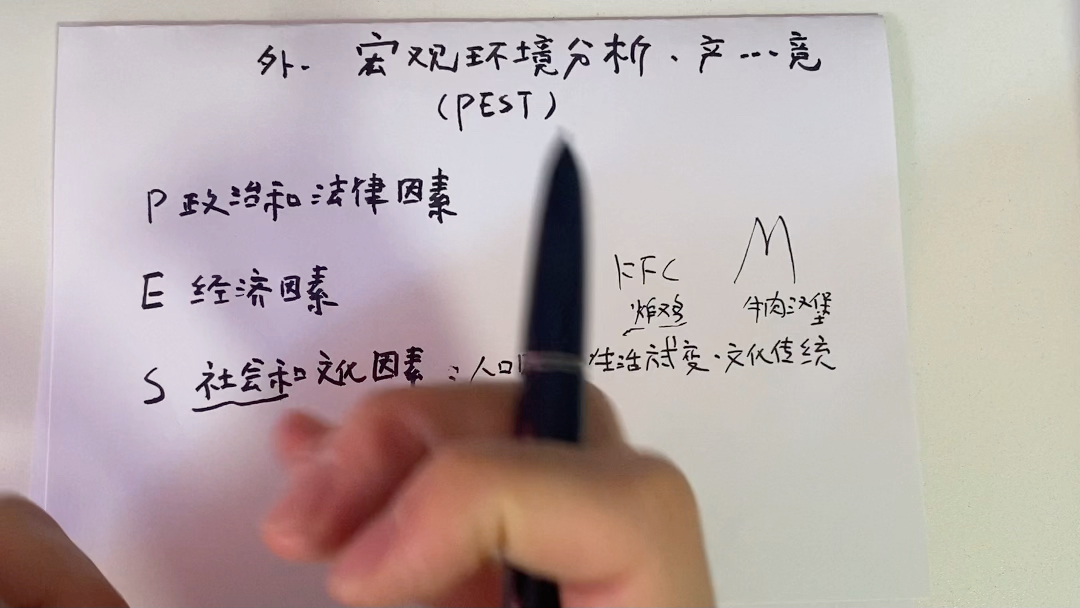 外. 宏观环境分析、产…竟
(PEST)
P 政治和法律因素
E 经济因素
KFC M
炸鸡 牛肉汉堡
S 社会和文化因素:人口 生活式变.文化传统